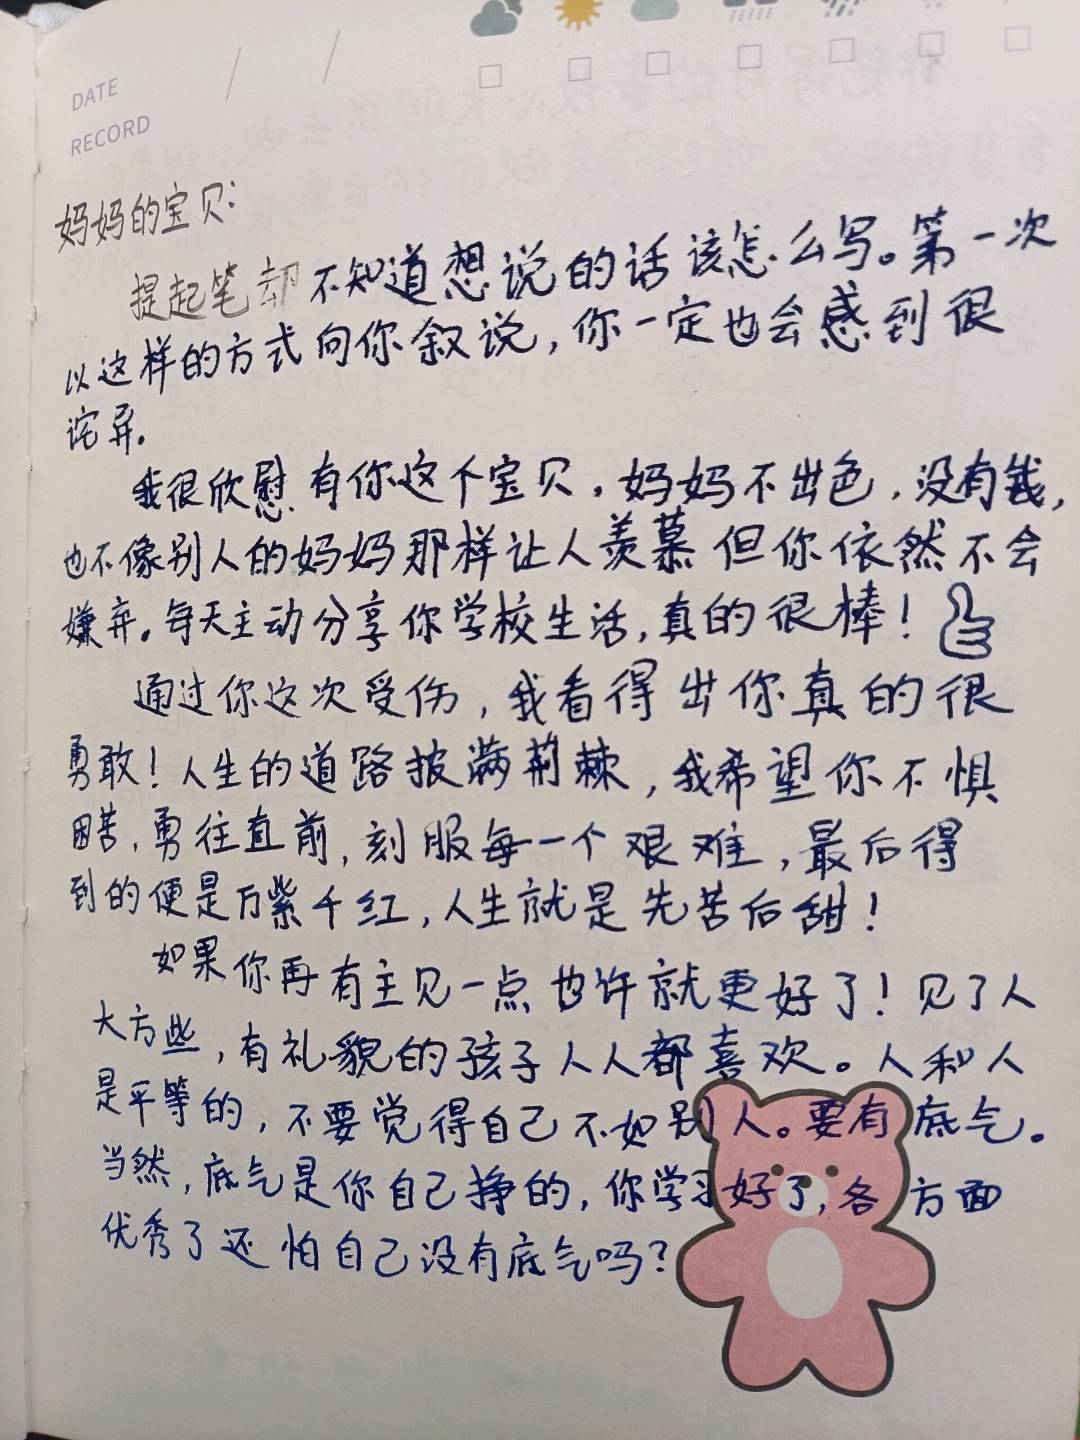 DATE / /
RECORD
妈妈的宝贝:
提起笔却不知道想说的话该怎么写。第一次
以这样的方式向你叙说,你一定也会感到很
诧异。
我很欣慰有你这个宝贝,妈妈不出色,没有钱,
也不像别人的妈妈那样让人羡慕但你依然不会
嫌弃。每天主动分享你学校生活,真的很棒!
通过你这次受伤,我看得出你真的很
勇敢!人生的道路披满荆棘,我希望你不惧
困苦,勇往直前,刻服每一个艰难,最后得
到的便是万紫千红,人生就是先苦后甜!
如果你再有主见一点也许就更好了!见了人
大方些,有礼貌的孩子人人都喜欢。人和人
是平等的,不要觉得自己不如别人。要有底气。
当然,底气是你自己挣的,你学习好了,各方面
优秀了还怕自己没有底气吗?